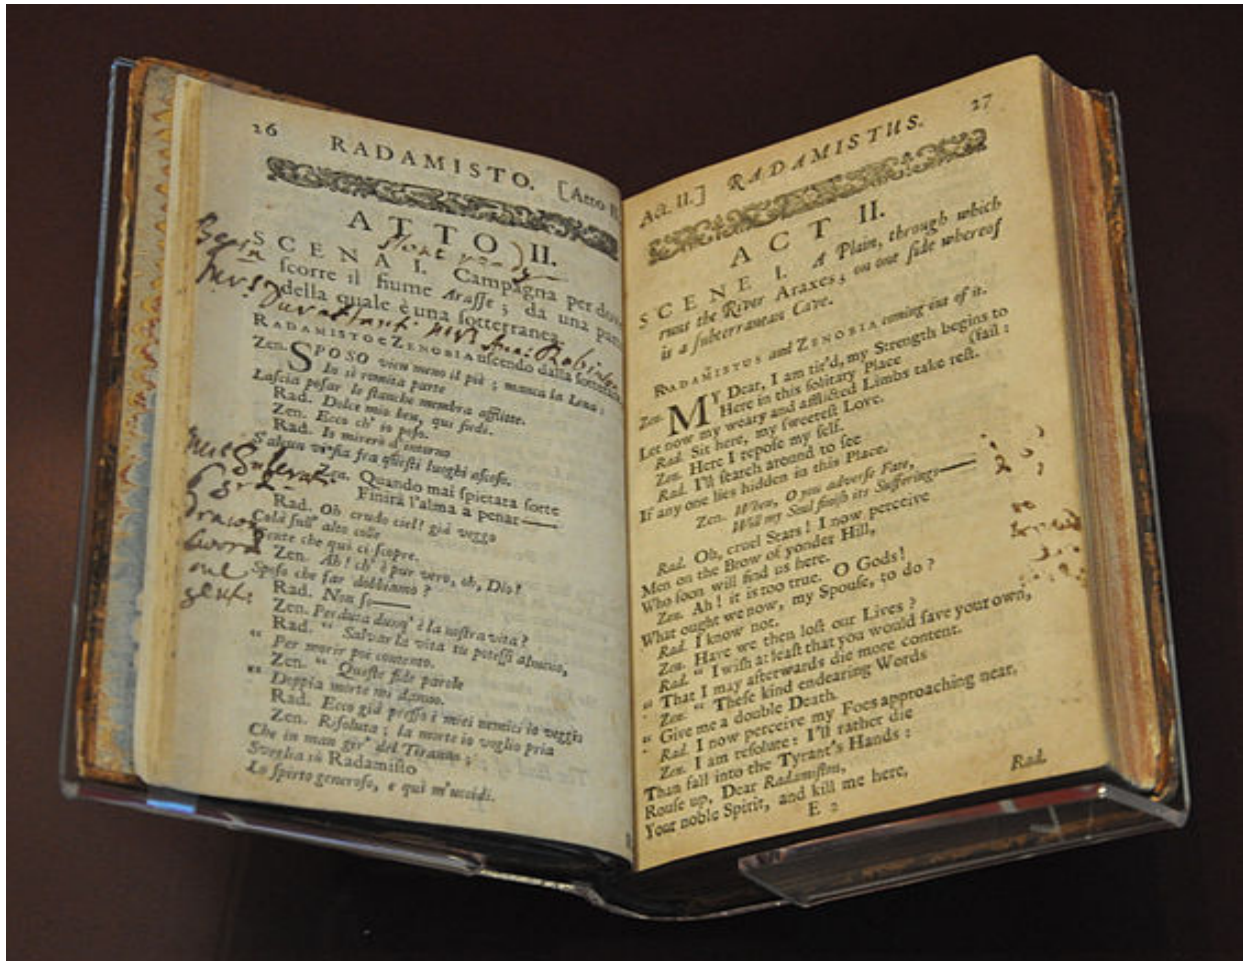 26
RADAMISTO. [Atto II
ATTO II.
SCENA I. Campagna per dove
scorre il fiume Arasse; da una parte
della quale è una sotterranea.
RADAMISTO e ZENOBIA uscendo dalla sotterranea.
Zen. SPOSO vien meno il piè; manca la Lena:
In sì romita parte
Lascia posar le stanche membra afflitte.
Rad. Dolce mio ben, qui siedi.
Zen. Ecco ch' io poso.
Rad. Io miserò d'intorno
S'alcun vi sia fra questi luoghi ascoso.
Zen. Quando mai spietata sorte
Finirà l'alma a penar——
Rad. Oh crudo ciel! già veggo
Colà sull' alto colle
Gente che qui ci scopre.
Zen. Ah! ch' è pur vero, oh, Dio!
Sposo che far dobbiamo?
Rad. Non so——
Zen. Perduta dunq' è la nostra vita?
Rad. “ Salvar la vita tù potessi almeno,
“ Per morir poi contento.
Zen. “ Queste fide parole
“ Doppia morte mi danno.
Rad. Ecco già presso i miei nemici io veggio
Zen. Risoluta; la morte io voglio pria
Che in man gir' del Tiranno;
Sveglia sù Radamisto
Lo spirto generoso, e quì m'uccidi.
Begin
Mrs. Durastanti: Mrs. Ann: Robinson
Guns
Drawn
sword
one
gent:
27
Act. II.] RADAMISTUS.
ACT II.
SCENE I. A Plain, through which
runs the River Araxes; on one side whereof
is a subterranean Cave.
RADAMISTUS and ZENOBIA coming out of it.
Zen. MY Dear, I am tir'd, my Strength begins to
Here in this solitary Place (fail:
Let now my weary and afflicted Limbs take rest.
Rad. Sit here, my sweetest Love.
Zen. Here I repose my self.
Rad. I'll search around to see
If any one lies hidden in this Place.
Zen. When, O you adverse Fate,
Will my Soul finish its Sufferings——
Rad. Oh, cruel Stars! I now perceive
Men on the Brow of yonder Hill,
Who soon will find us here.
Zen. Ah! it is too true. O Gods!
What ought we now, my Spouse, to do?
Rad. I know not.
Zen. Have we then lost our Lives?
Rad. “ I wish at least that you would save your own,
“ That I may afterwards die more content.
Zen. “ These kind endearing Words
“ Give me a double Death.
Rad. I now perceive my Foes approaching near,
Zen. I am resolute: I'll rather die
Than fall into the Tyrant's Hands:
Rouse up, Dear Radamistus,
Your noble Spirit, and kill me here,
E 2
Rad.